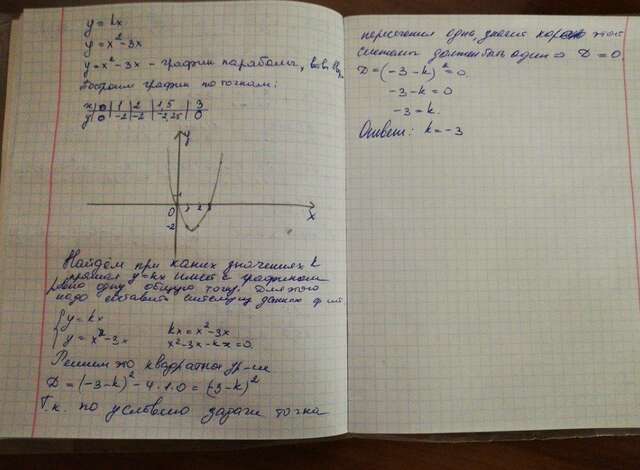 y = kx
y = x² - 3x
y = x² - 3x - график параболы,
Построим график по точкам:
x | 0 | 1 | 2 | 1,5 | 3
y | 0 | -2 | -2 | -2,25 | 0
y
1
0 1 2 3
x
-2
Найдём при каких значениях k
прямая y=kx имеет с графиком
ровно одну общую точку. Для этого
надо составить систему данных
{ y = kx
y = x² - 3x
kx = x² - 3x
x² - 3x - kx = 0
Решим это квадратное ур-ие
D = (-3-k)² - 4·1·0 = (-3-k)²
Т.к. по условию задачи точка
пересечения одна, значит этой
системы должен быть один ⇒ D = 0.
D = (-3-k)² = 0
-3-k = 0
-3 = k.
Ответ: k = -3